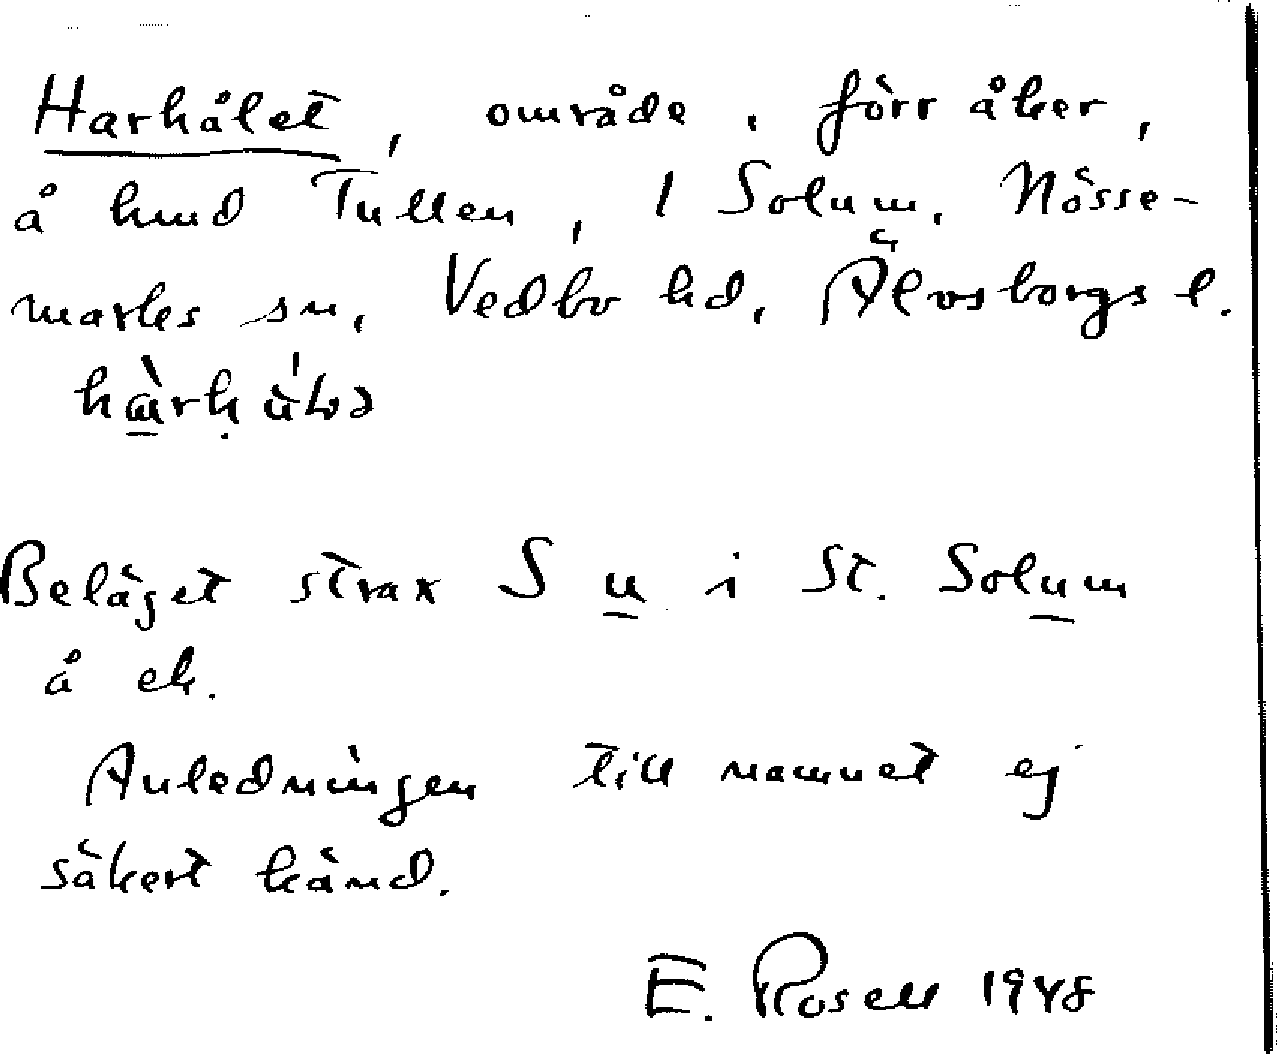 Harhålet, område, förr åker,
å hmd Tullen, 1 Solum, Nösse-
marks sn, Vedbo hd, Älvsborgs l.
Beläget strax S u i St. Solum
å ek.
Anledningen till namnet ej
säkert känd.
E. Rosell 1948